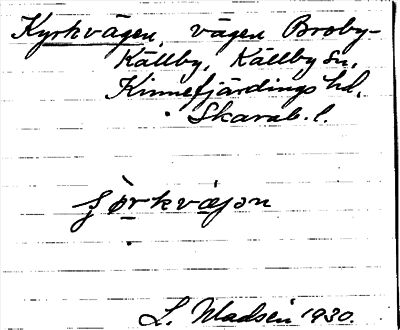 Kyrkvägen, vägen Broby-
Källby, Källby sn,
Kinnefjärdings hd,
Skarab. l.
L. Madsén 1930.